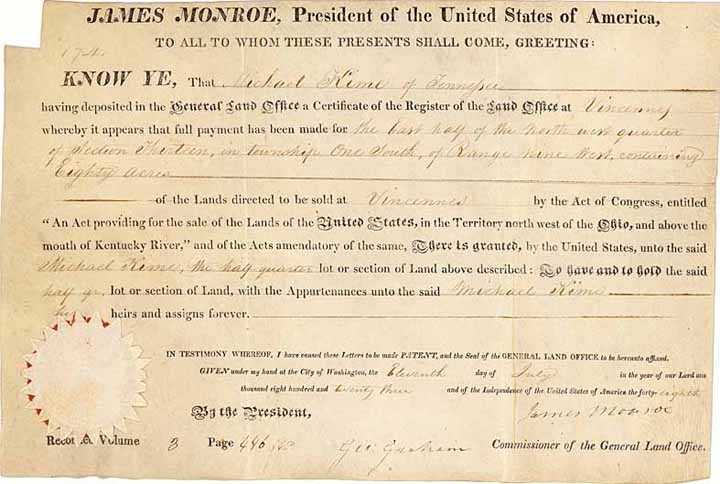 JAMES MONROE, President of the United States of America,
TO ALL TO WHOM THESE PRESENTS SHALL COME, GREETING:
KNOW YE, That Michael Kime of Tennessee
having deposited in the General Land Office a Certificate of the Register of the Land Office at Vincennes
whereby it appears that full payment has been made for the East half of the North west quarter
of Section Thirteen, in township One South, of Range nine West, containing
Eighty acres
of the Lands directed to be sold at Vincennes by the Act of Congress, entitled
"An Act providing for the sale of the Lands of the United States, in the Territory north west of the Ohio, and above the
mouth of Kentucky River," and of the Acts amendatory of the same, There is granted, by the United States, unto the said
Michael Kime, the half quarter lot or section of Land above described: To have and to hold the said
half qr. lot or section of Land, with the Appurtenances unto the said Michael Kime
his heirs and assigns forever.
IN TESTIMONY WHEREOF, I have caused these Letters to be made PATENT, and the Seal of the GENERAL LAND OFFICE to be hereunto affixed.
GIVEN under my hand at the City of Washington, the Eleventh day of July in the year of our Lord one
thousand eight hundred and twenty three and of the Independence of the United States of America the forty-eighth
By the President, James Monroe
Recor Volume 3 Page 446 Geo: Graham Commissioner of the General Land Office.